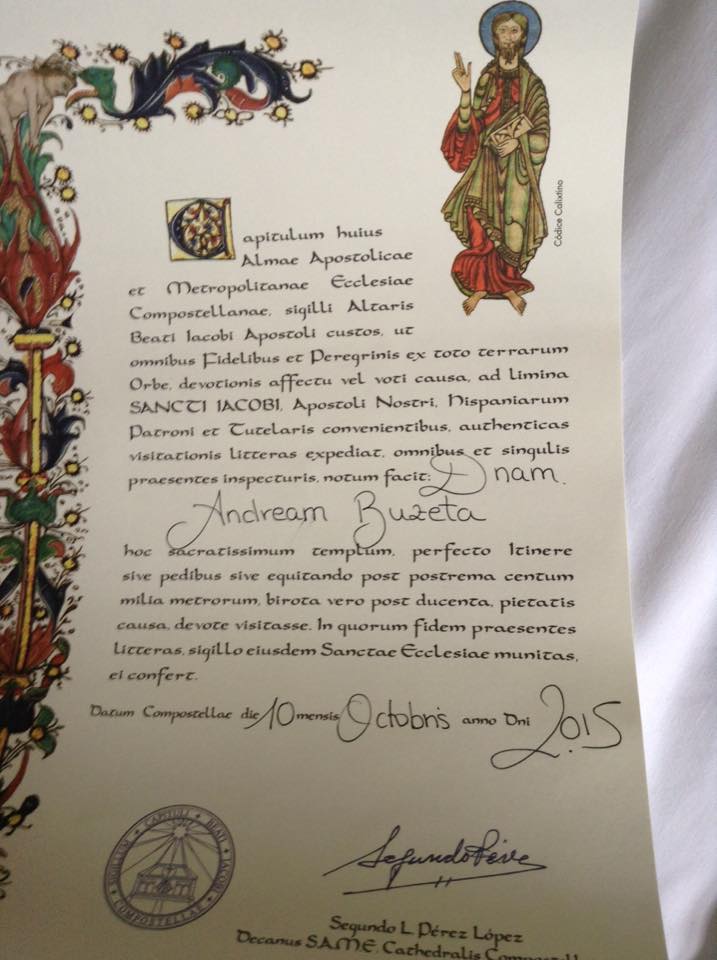 Códice Calixtino
Capitulum huius
Almae Apostolicae
et Metropolitanae Ecclesiae
Compostellanae, sigilli Altaris
Beati Iacobi Apostoli custos, ut
omnibus Fidelibus et Peregrinis ex toto terrarum
Orbe, devotionis affectu vel voti causa, ad limina
SANCTI IACOBI, Apostoli Nostri, Hispaniarum
Patroni et Tutelaris convenientibus, authenticas
visitationis litteras expediat, omnibus et singulis
praesentes inspecturis, notum facit: Dnam.
Andream Buzeta
hoc sacratissimum templum, perfecto Itinere
sive pedibus sive equitando post postrema centum
milia metrorum, birota vero post ducenta, pietatis
causa, devote visitasse. In quorum fidem praesentes
litteras, sigillo eiusdem Sanctae Ecclesiae munitas,
ei confert.
Datum Compostellae die 10 mensis Octobris anno Dni 2.015
SIGILLUM CAPITULI BEATI IACOBI COMPOSTELLAE
Segundo Pérez
Segundo L. Pérez López
Decanus S.A.M.E. Cathedralis Compostell